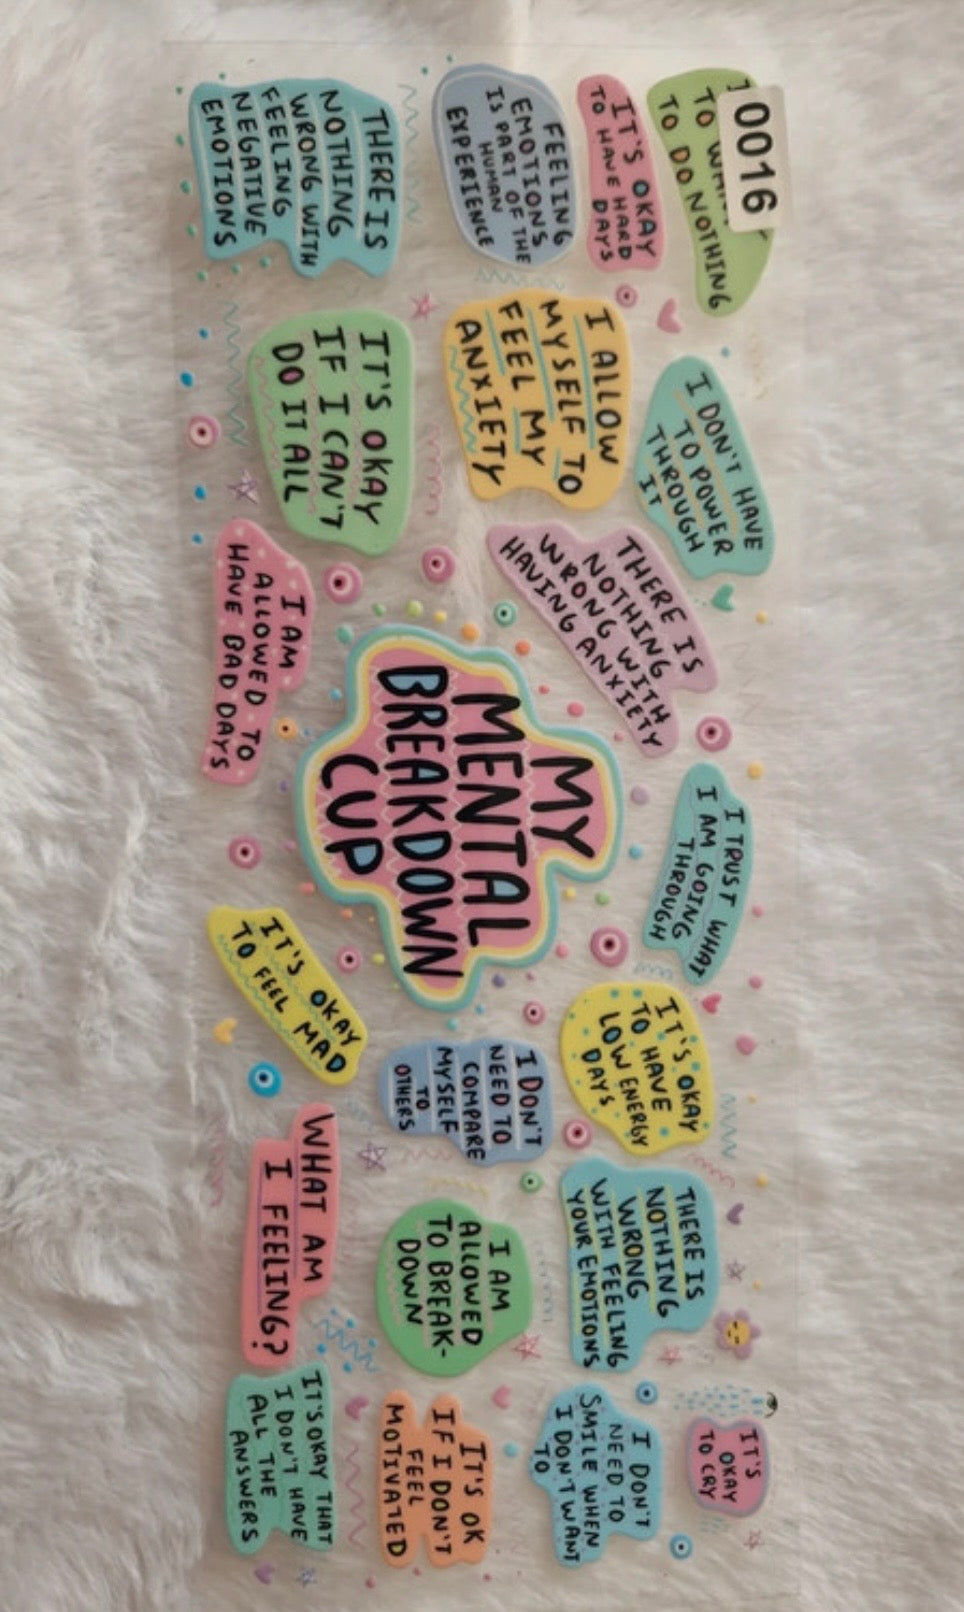 0016
TO
TO DO NOTHING
I DON'T HAVE
TO POWER
THROUGH
IT
I TRUST WHAT
I AM GOING
THROUGH
IT'S OKAY
TO HAVE
LOW ENERGY
DAYS
THERE IS
NOTHING
WRONG
WITH FEELING
YOUR EMOTIONS
IT'S
OKAY
TO CRY
IT'S OKAY
TO HAVE HARD
DAYS
I ALLOW
MYSELF TO
FEEL MY
ANXIETY
THERE IS
NOTHING
WRONG WITH
HAVING ANXIETY
I DON'T
NEED TO
SMILE WHEN
I DON'T WANT
TO
FEELING
EMOTIONS
IS PART OF THE
HUMAN
EXPERIENCE
MY
MENTAL
BREAKDOWN
CUP
I DON'T
NEED TO
COMPARE
MYSELF
TO
OTHERS
I AM
ALLOWED
TO BREAK-
DOWN
IT'S OK
IF I DON'T
FEEL
MOTIVATED
THERE IS
NOTHING
WRONG WITH
FEELING
NEGATIVE
EMOTIONS
IT'S OKAY
IF I CAN'T
DO IT ALL
I AM
ALLOWED TO
HAVE BAD DAYS
IT'S OKAY
TO FEEL MAD
WHAT AM
I FEELING?
IT'S OKAY THAT
I DON'T HAVE
ALL THE
ANSWERS